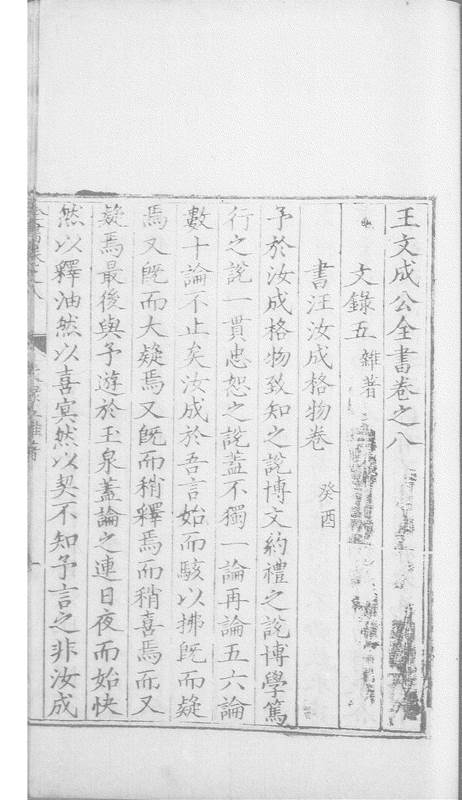 王文成公全書卷之八
文錄五 雜著
書汪汝成格物卷 癸酉
予於汝成格物致知之說博文約禮之說博學篤
行之說一貫忠恕之說蓋不獨一論再論五六論
數十論不止矣汝成於吾言始而駭以拂旣而疑
焉又旣而大疑焉又旣而稍釋焉而稍喜焉而又
疑焉最後與予遊於玉泉蓋論之連日夜而始快
然以釋油然以喜冥然以契不知予言之非汝成